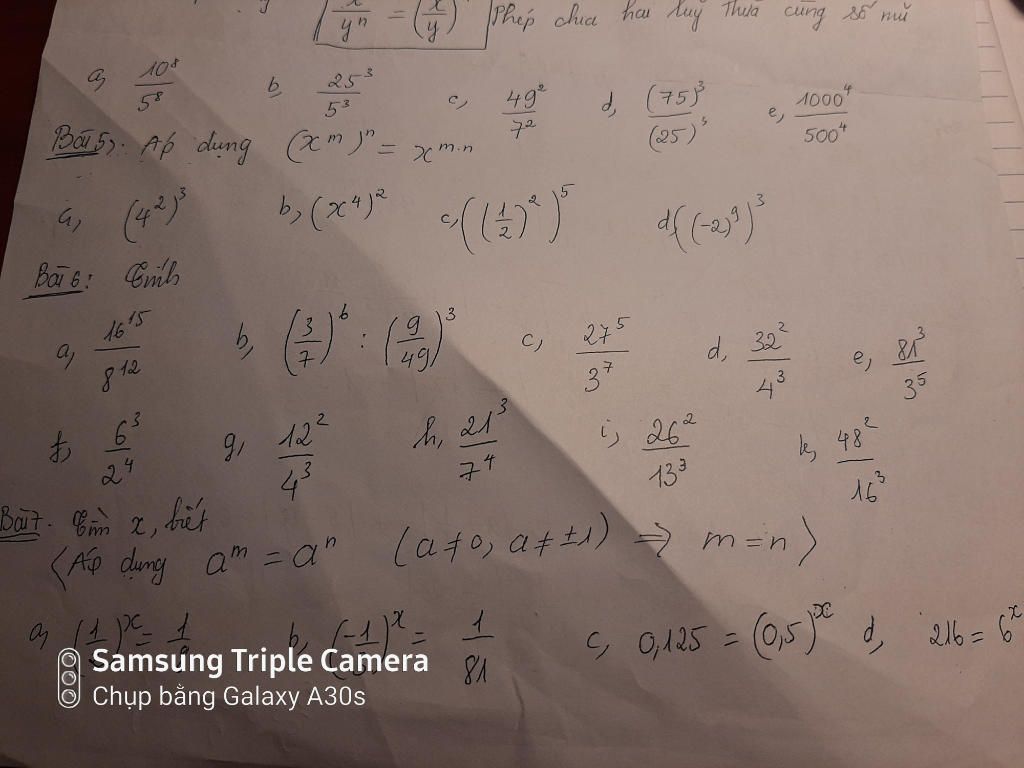 x/yⁿ = (x/y) Phép chia hai luỹ thừa cùng số mũ
a, 10⁸/5⁸ b, 25³/5³ c, 49²/7² d, (75)³/(25)³ e, 1000⁴/500⁴
Bài 5: Áp dụng (xᵐ)ⁿ = xᵐ·ⁿ
a, (4²)³ b, (x⁴)² c, ((1/2)²)⁵ d, ((-2)⁹)³
Bài 6: Tính
a, 16¹⁵/8¹² b, (3/7)⁶ : (9/49)³ c, 27⁵/3⁷ d, 32²/4³ e, 81³/3⁵
f, 6³/2⁴ g, 12²/4³ h, 21³/7⁴ i, 26²/13³ k, 48²/16³
Bài 7. Tìm x, biết
⟨Áp dụng aᵐ = aⁿ (a ≠ 0, a ≠ ±1) ⇒ m = n⟩
a, (1/ )ˣ = 1/ b, (-1/ )ˣ = 1/81 c, 0,125 = (0,5)ˣ d, 216 = 6ˣ
Samsung Triple Camera
Chụp bằng Galaxy A30s